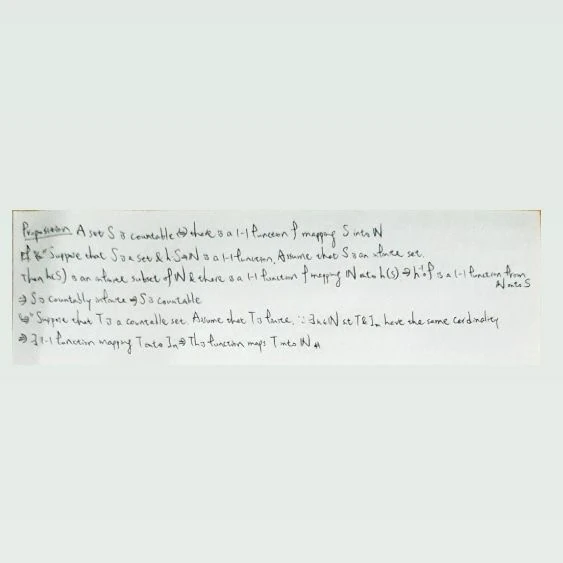 Proposition A set S is countable ⇔ there is a 1-1 function f mapping S into N
Pf "⇐" Suppose that S is a set & h: S→N is a 1-1 function. Assume that S is an infinite set.
Then h(S) is an infinite subset of N & there is a 1-1 function f mapping N onto h(S) ⇒ h⁻¹∘f is a 1-1 function from N onto S
⇒ S is countably infinite ⇒ S is countable
"⇒" Suppose that T is a countable set. Assume that T is finite, ∵ ∃n∈N st T & Iₙ have the same cardinality
⇒ ∃ 1-1 function mapping T onto Iₙ ⇒ This function maps T into N